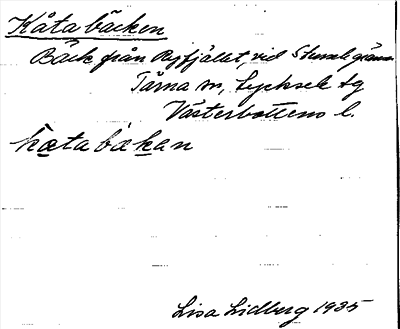 Kåtabäcken
Bäck från Ryfjället, vid Stensele gräns
Tärna sn, Lycksele tg
Västerbottens l.
kȧtabäkan
Lisa Lidberg 1935